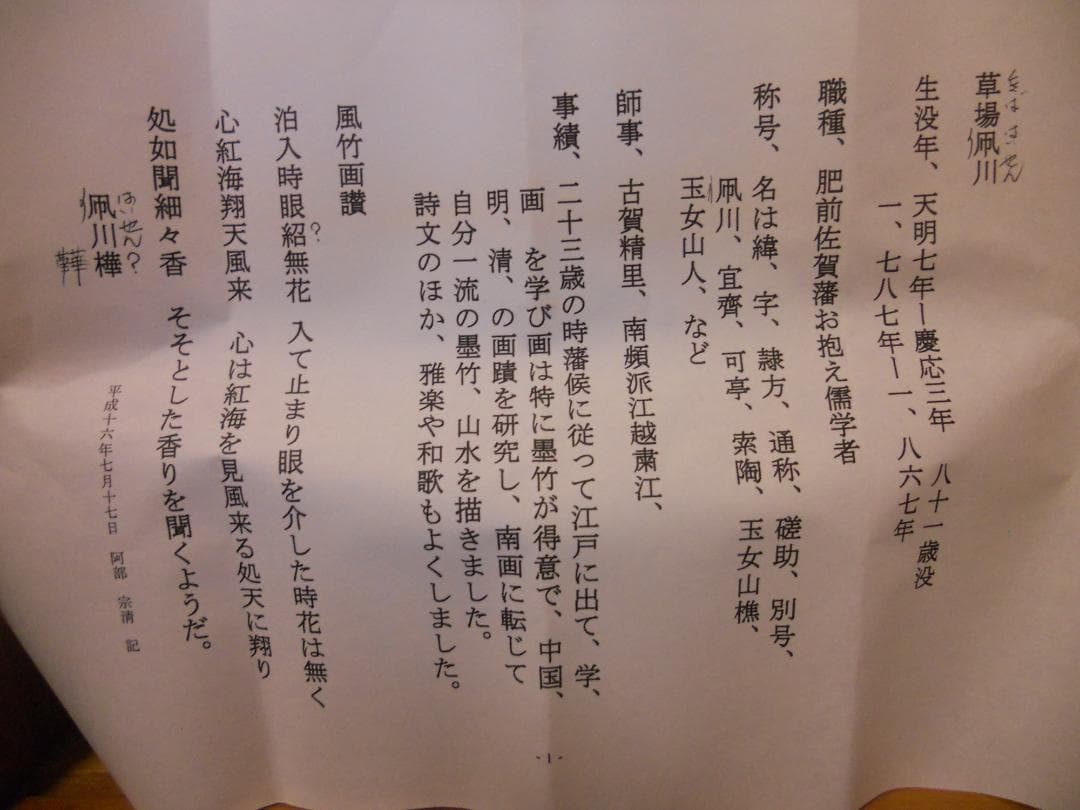 草場凧川
くさば はいせん
生没年、天明七年ー慶応三年 八十一歳没
一、七八七年ー一、八六七年
職種、肥前佐賀藩お抱え儒学者
称号、名は緯、字、隷方、通称、磋助、別号、
凧川、宜齊、可亭、索陶、玉女山樵、
玉女山人、など
師事、古賀精里、南頻派江越粛江、
事績、二十三歳の時藩候に従って江戸に出て、学、
画 を学び画は特に墨竹が得意で、中国、
明、清、の画蹟を研究し、南画に転じて
自分一流の墨竹、山水を描きました。
詩文のほか、雅楽や和歌もよくしました。
風竹画讃
泊入時眼紹無花 入て止まり眼を介した時花は無く
?
心紅海翔天風来 心は紅海を見風来る処天に翔り
処如聞細々香 そそとした香りを聞くようだ。
凧川樺
はいせん?
韡
平成十六年七月十七日 阿部 宗清 記
-1-